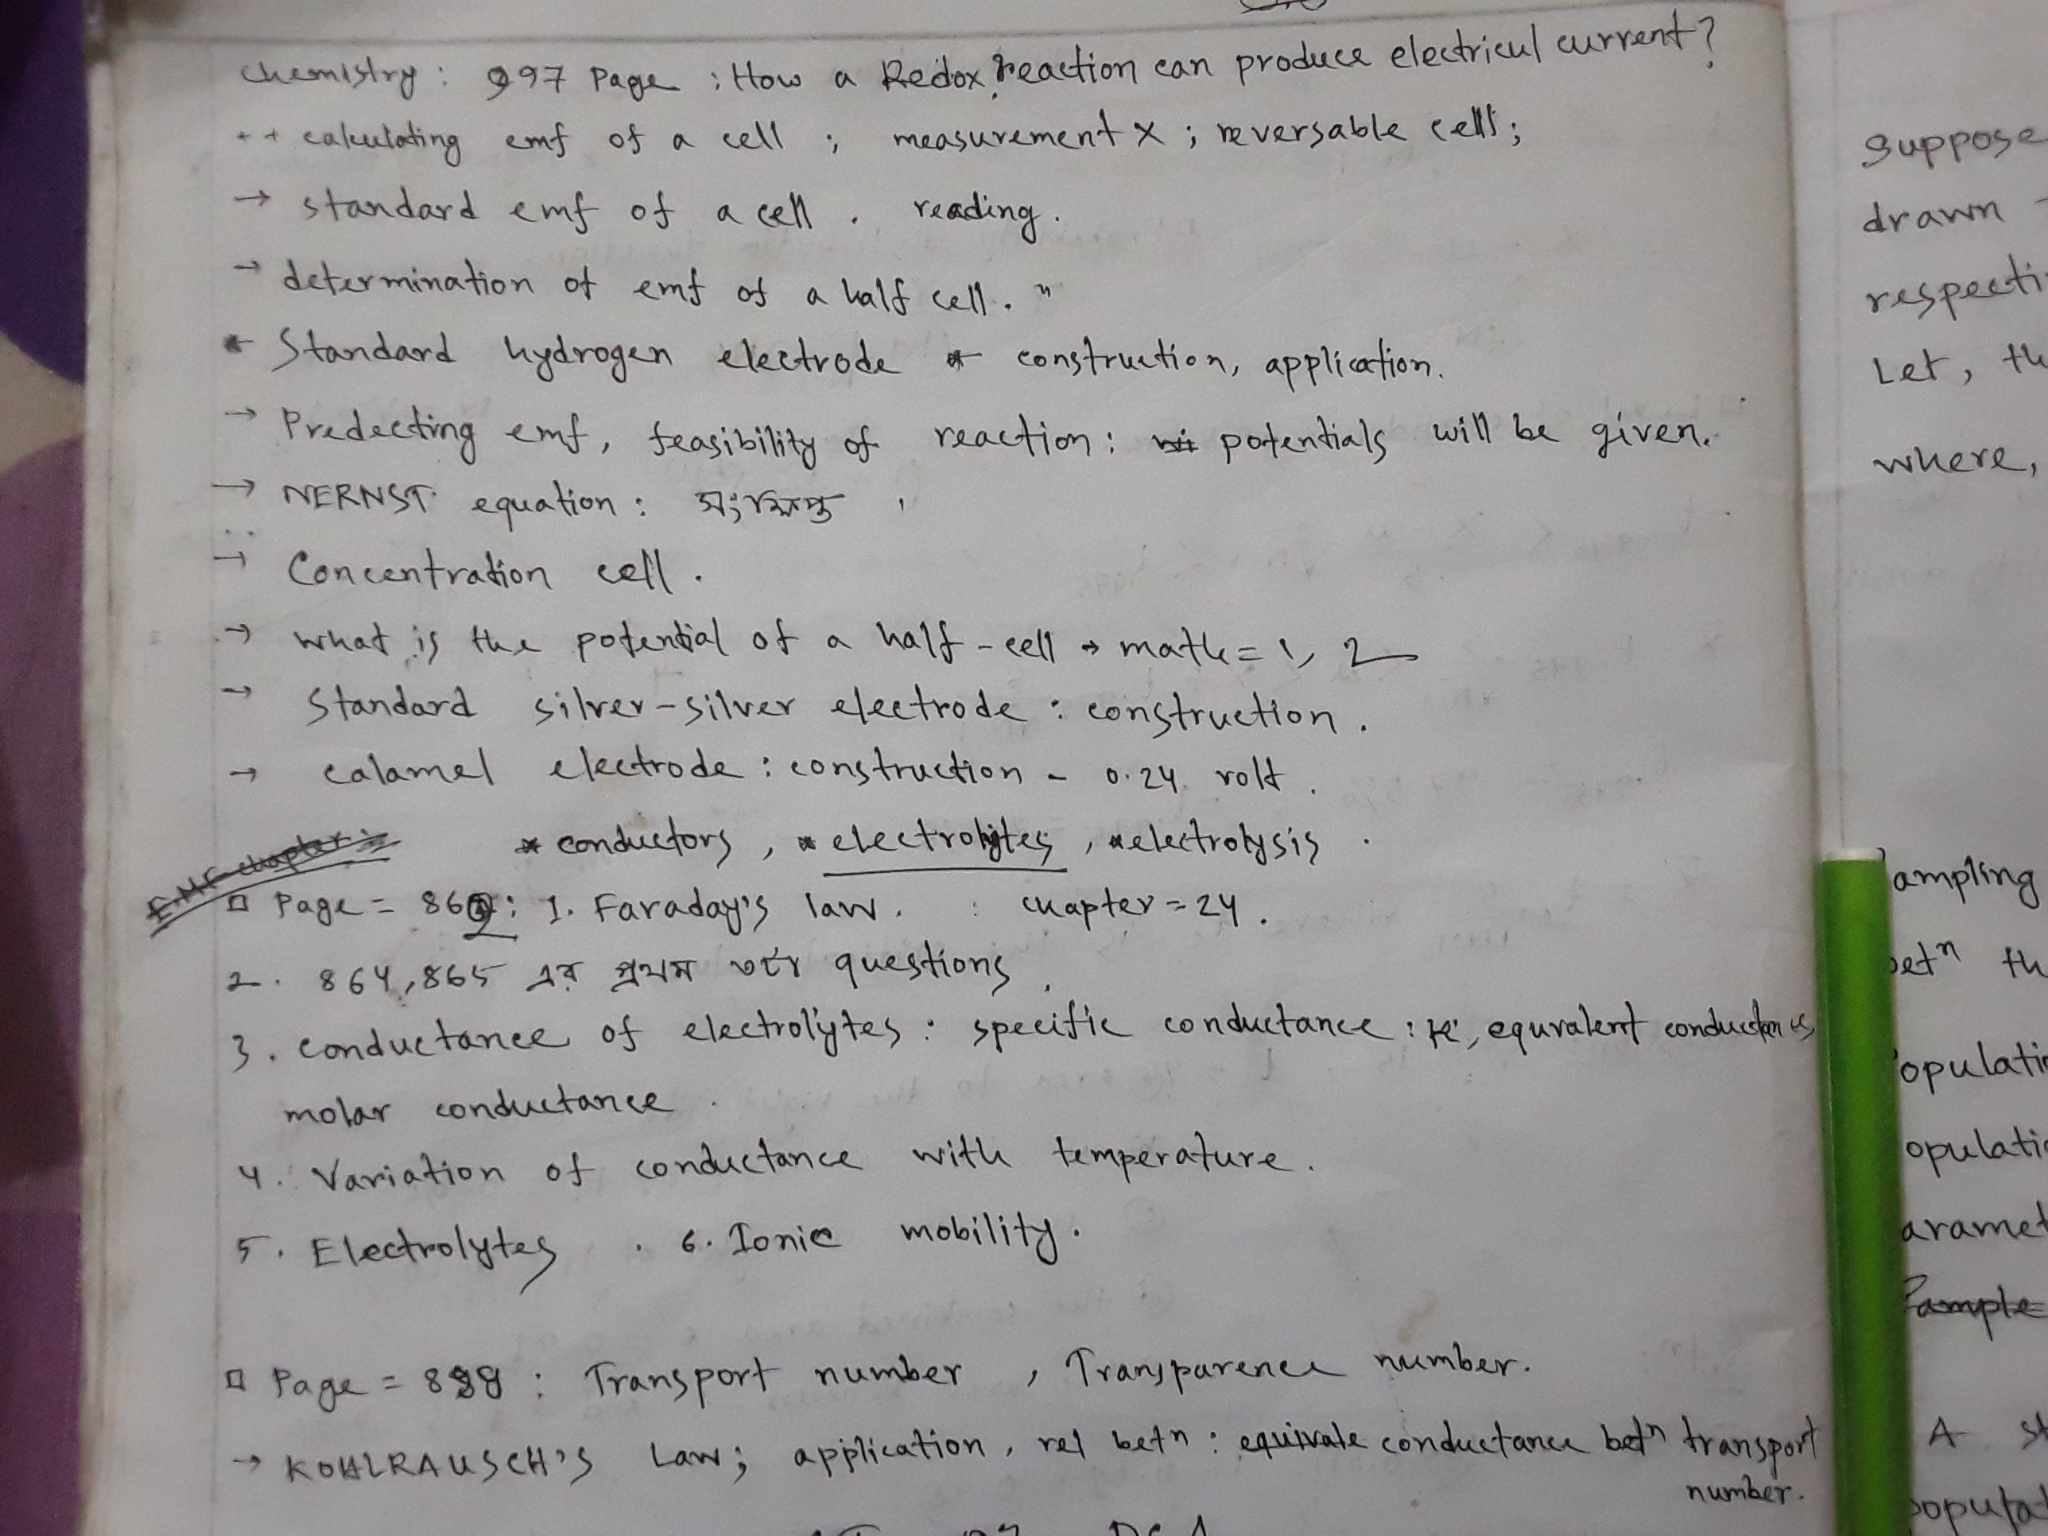 Chemistry : 997 Page ; How a Redox reaction can produce electricul current?
++ calculating emf of a cell ; measurement x ; reversable cell ;
→ standard emf of a cell . reading .
→ determination of emf of a half cell . "
* Standard hydrogen electrode * construction, application.
→ Predecting emf, feasibility of reaction : potentials will be given.
→ NERNST equation : সংক্ষিপ্ত ,
→ Concentration cell .
→ what is the potential of a half-cell → math = 1, 2
→ Standard silver-silver electrode : construction .
→ calamel electrode : construction - 0.24 volt .
* conductors , * electrolytes , * electrolysis .
E.M.F chapter :
□ Page = 862 : 1. Faraday's law . : chapter = 24 .
2. 864, 865 এর প্রথম questions .
3. conductance of electrolytes : specific conductance : K, equvalent conductances
molar conductance .
4. Variation of conductance with temperature .
5. Electrolytes . 6. Ionic mobility .
□ Page = : Transport number , Transparence number .
→ KOHLRAUSCH'S Law ; application , rel betn : equivale conductance betn transport
number .
suppose
drawn
respecti
Let, th
where,
ampling
betn th
opulati
opulati
aramet
Sample
A st
populat